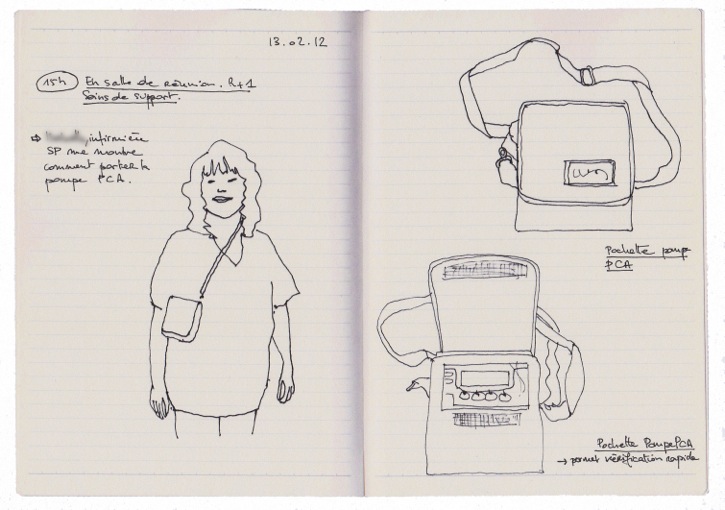 13.02.12
15h En salle de réunion. R+1
Soins de support.
⇨ , infirmière
SP me montre
comment porter la
pompe PCA.
Pochette pompe
PCA
Pochette Pompe PCA
→ permet vérification rapide